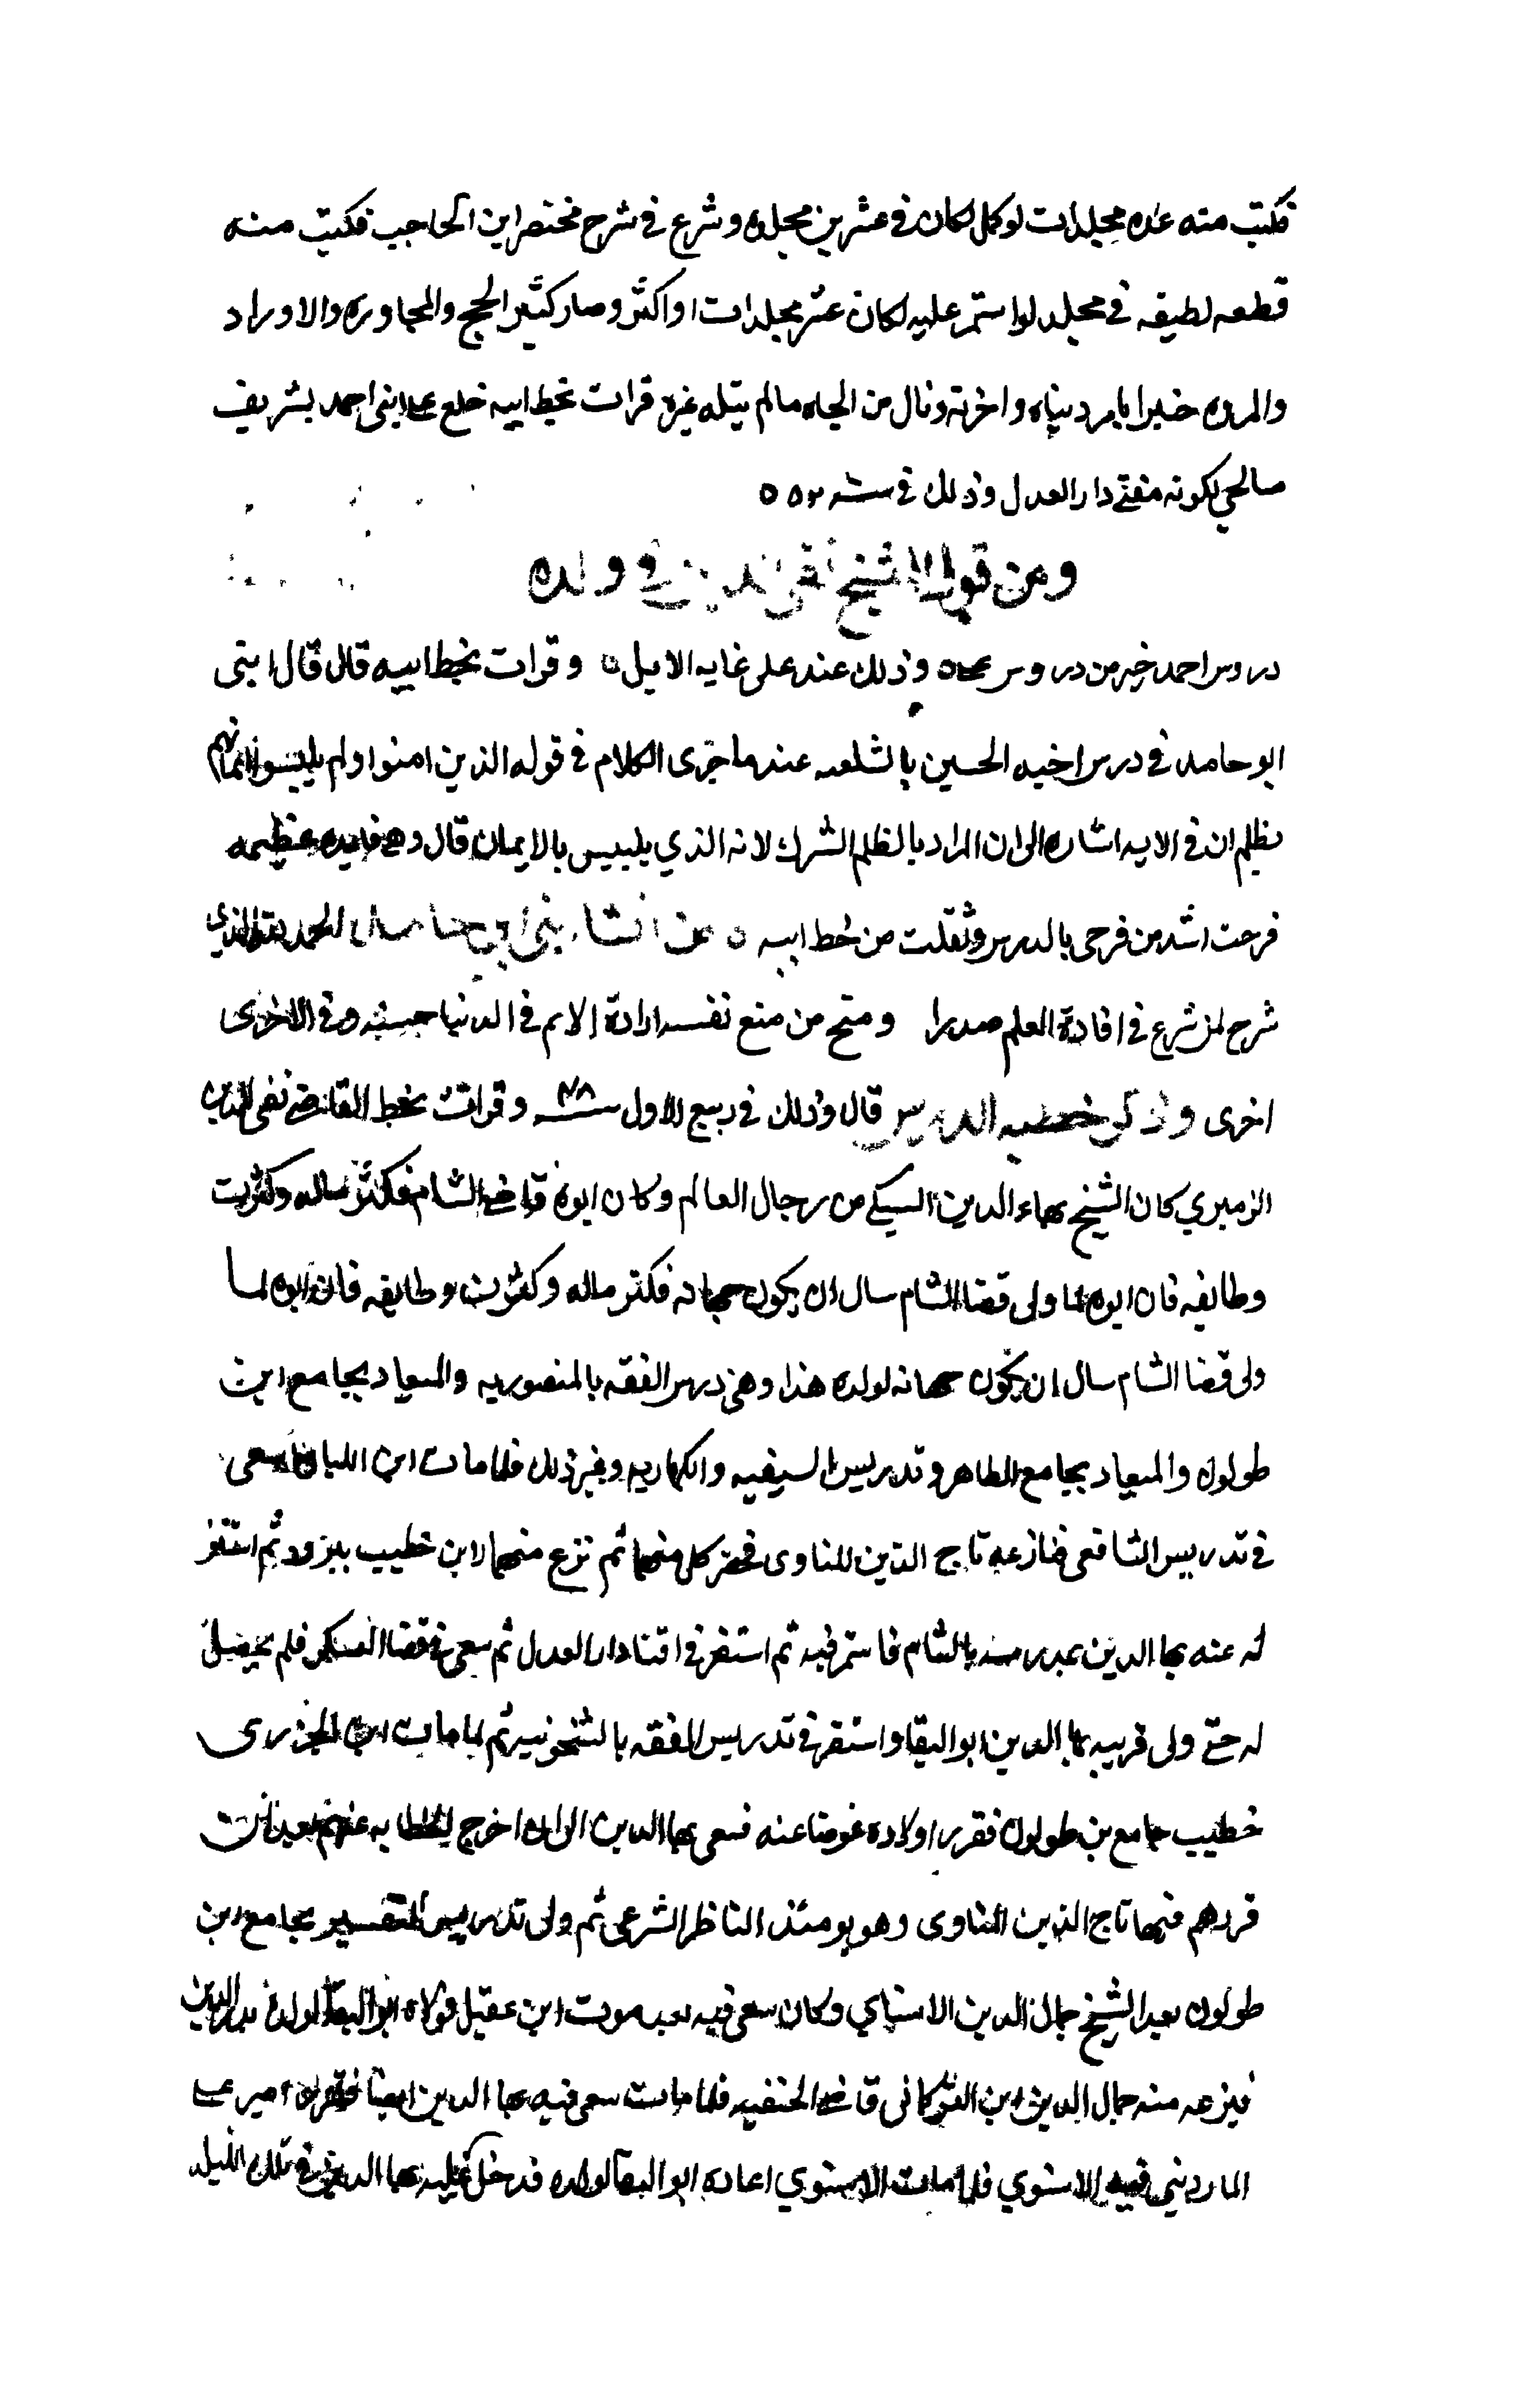 فكتب منه عده مجلدات لو كمل لكان في عشرين مجلده وشرع في شرح مختصر ابن الحاجب فكتب منه
قطعه لطيفه في مجلد لو استمر عليه لكان عشر مجلدات او اكثر وصار كثير الحج والمجاوره والاوراد
والمروه خبيرا بامر دنياه واخرته ونال من الجاه مالم ينله غيره قرات بخط ابيه خلع على ابني احمد بشريف
صالحي لكونه مفتي دار العدل وذلك في سنة ٥٢
ومن قول الشيخ تقي الدين في ولده
دروس احمد خير من دروس علي وذلك عند علي غايه الامل ٥ وقرات بخط ابيه قال قال ابني
ابو حامد في درس اخيه الحسين بالشلعه عندما جرى الكلام في قوله الذين امنوا ولم يلبسوا ايمانهم
بظلم ان في الايه اشاره الى ان المراد بالظلم الشرك لانه الذي يلبس بالايمان قال وهي فايده عظيمه
فرحت اشد من فرحى بالدرس ونقلت من خط ابيه ٥ من انشا ابني ابي حامد الحمد لله الذي
شرح لمن شرع في افادة العلم صدرا ومنح من منع نفسه ارادة الاثم في الدنيا حسنه وفي الاخرى
اخرى وذكر خطبه الدرس قال وذلك في ربيع الاول سنة ٤٨ وقرات بخط القاضي تقي الدين
الزبيري كان الشيخ بهاء الدين السبكي من رجال العالم وكان ابوه قاضي الشام فكثر ماله وكثرت
وظايفه فان ابوه لما ولى قضا الشام سال ان يكون جهاته فكثر ماله وكثرت وظايفه فان ابوه لما
ولى قضا الشام سال ان يكون جهاته لولده هذا وهي درس الفقه بالمنصوريه والميعاد بجامع ابن
طولون والميعاد بجامع الظاهر وتدريس السيفيه والكهاريه وغير ذلك فلما مات ابن اللبان سعى
في تدريس الشافعي فنازعه تاج الدين المناوى فحضر كل منهما ثم نزع منهما لابن خطيب يبرود ثم استقر
له عنه بها الدين بمدرسه بالشام فاستمر فيه ثم استقر في افتا دار العدل ثم سعى في قضا العسكر فلم يحصل
له حتى ولى قريبه بها الدين ابو البقا واستقر في تدريس الفقه بالشيخونيه ثم لما مات ابن الجزرى
خطيب جامع بن طولون فقرر اولاده عوضا عنه فسعى بها الدين الى ان اخرج الخطابه عنهم بعد ان
قررهم فيها تاج الدين المناوى وهو يومئذ الناظر الشرعى ثم ولى تدريس التفسير بجامع ابن
طولون بعد الشيخ جمال الدين الاسنايي وكان سعى فيه بعد موت ابن عقيل فولاه ابو البقا لولده بدر الدين
فنزعه منه جمال الدين ابن التركمانى قاضي الحنفيه فلما مات سعى فيه بها الدين ايضا فقرر امير علي
الماردينى فيه الاسنوي فلما مات الاسنوي اعاده ابو البقا لولده فدخل عليه بها الدين في تلك الليله